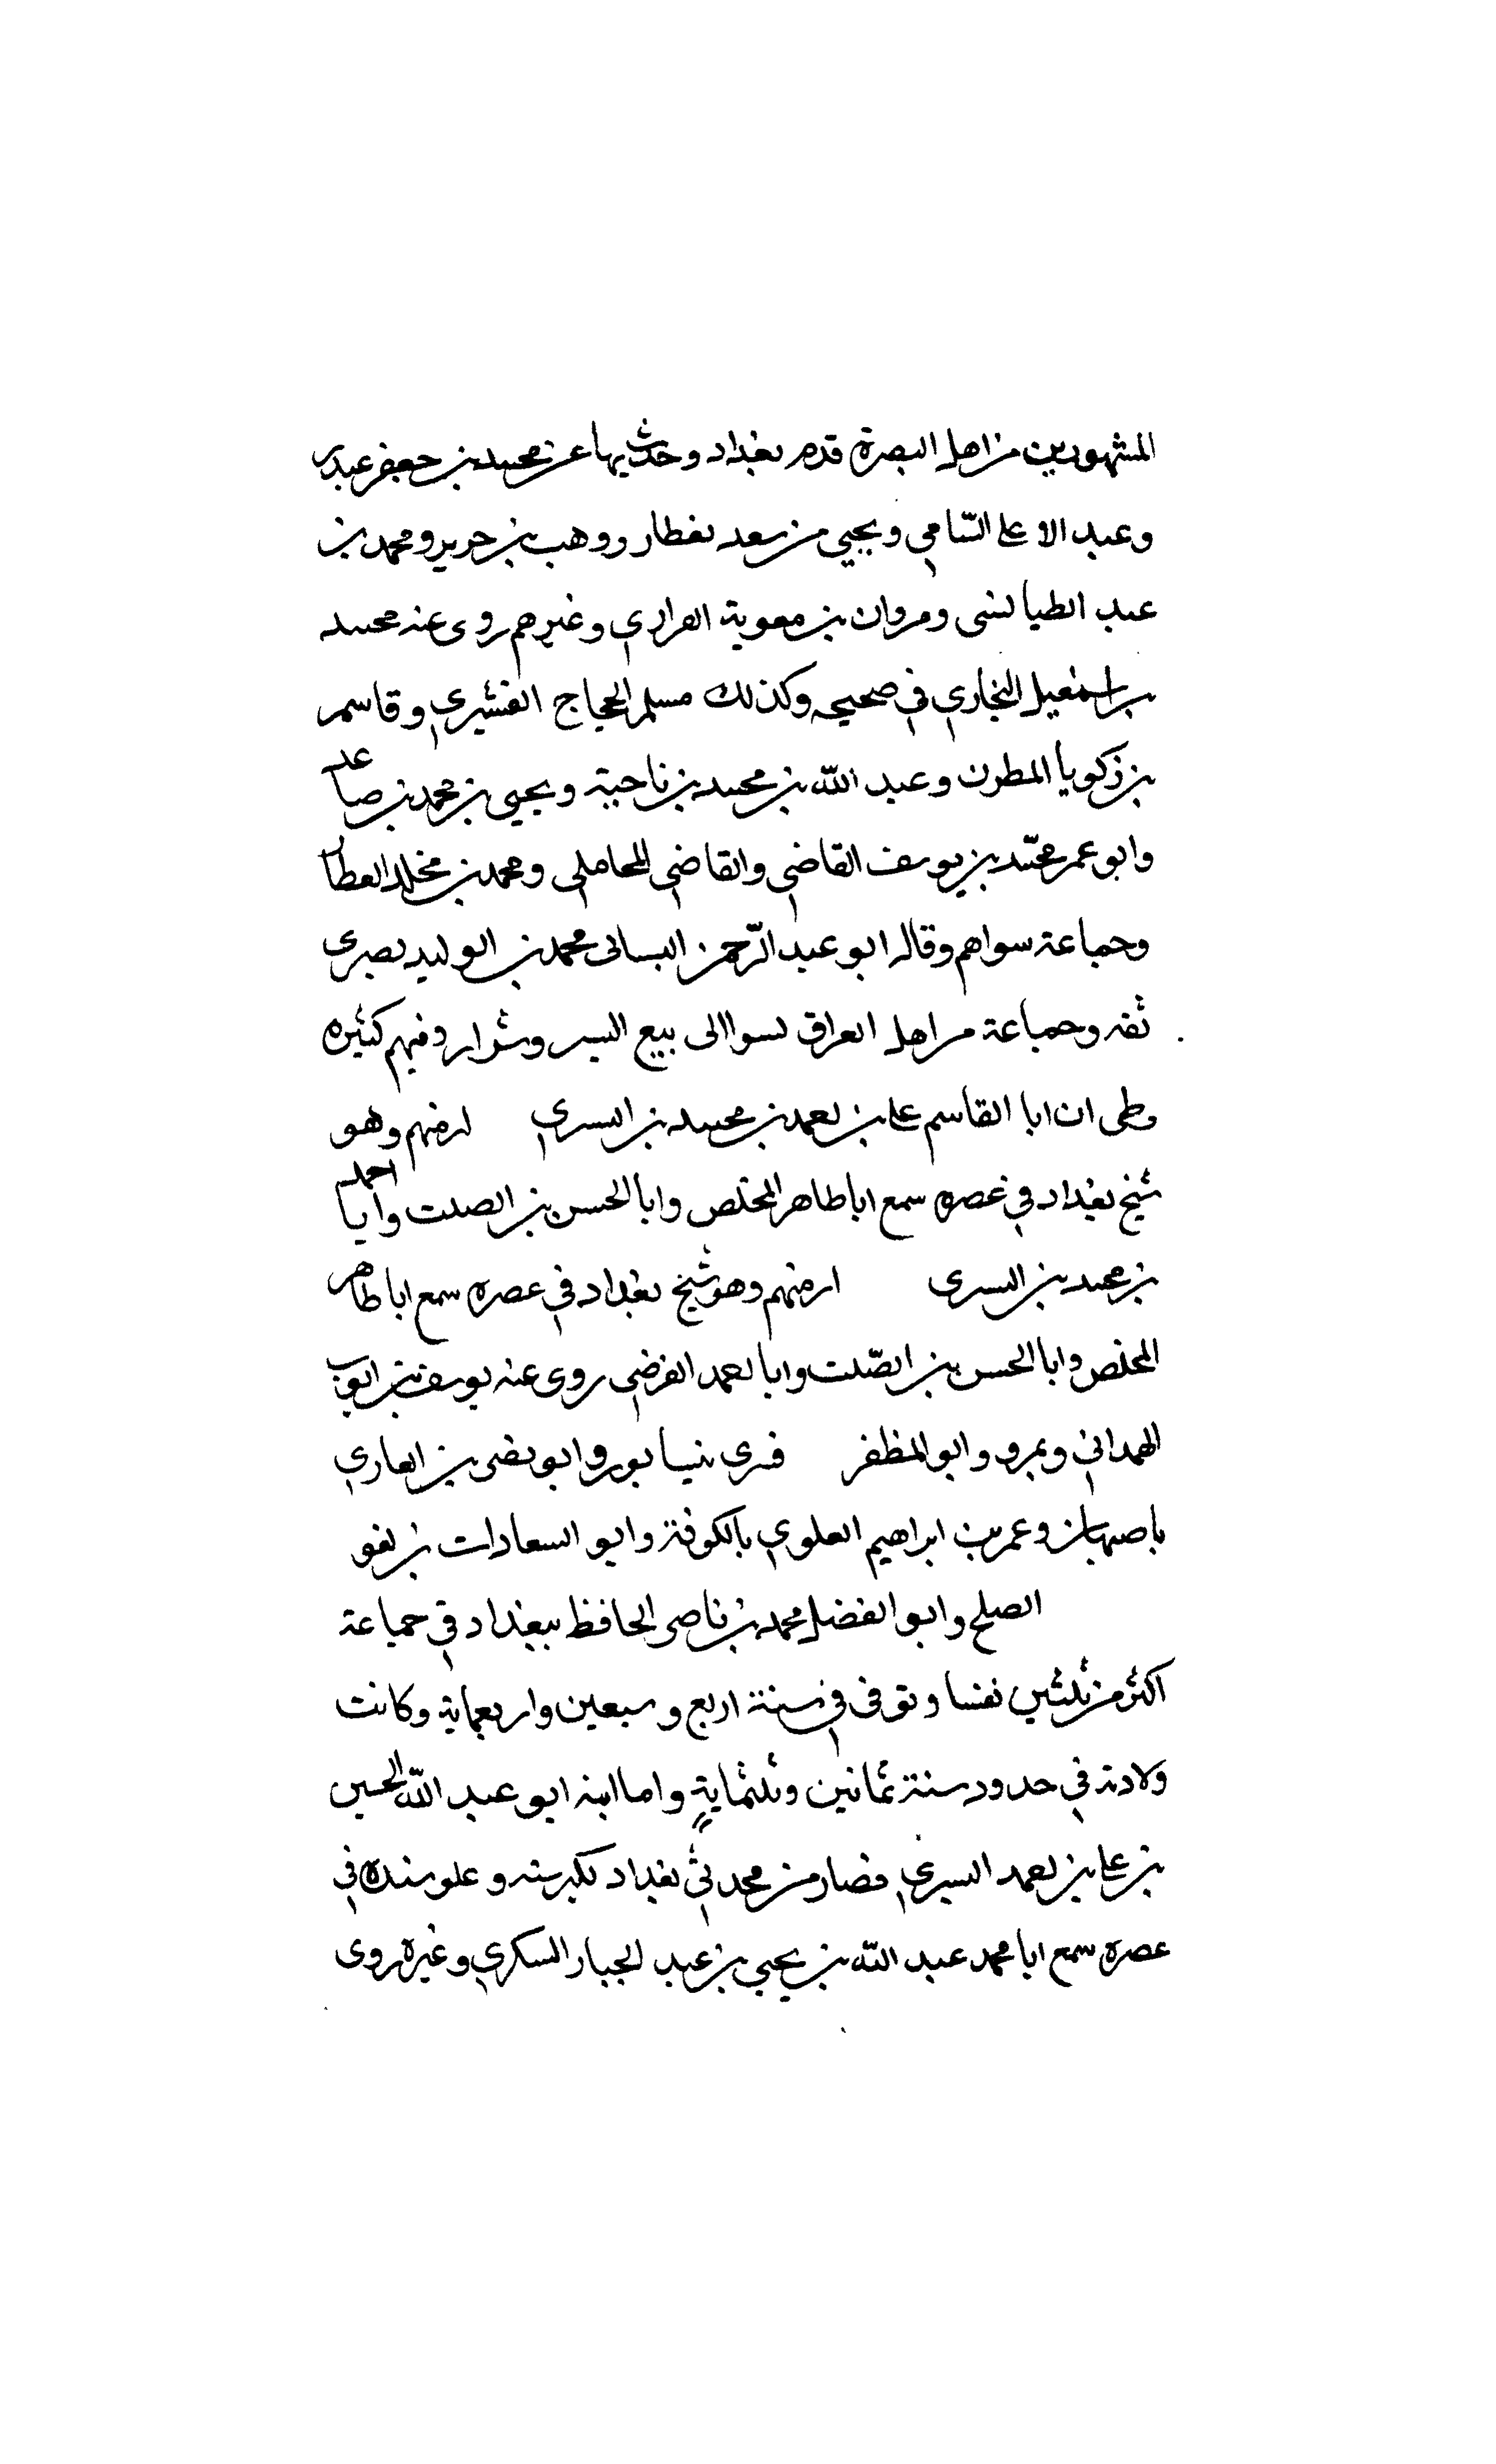 المشهورين من اهل البصرة قدم بغداد وحدث بها عن محمد بن جعفر عبدر
وعبد الاعلى السّامي ويحيى من سعد نفطار ووهب بن جرير ومحمد بن
عبد الطيالسى ومروان بن معوية الفراري وغيرهم روى عنه محمد
بن اسمعيل البخاري في صحيحه وكذلك مسلم الحجاج القشيري وقاسم
بن زكويا المطرن وعبد الله بن محمد بن ناحية ويحيى بن محمد بن صاعد
وابو عمر محمّد بن يوسف القاضي والقاضي المحاملى ومحمد بن مخلد العطار
وجماعة سواهم وقال ابو عبد الرّحمن النسائى محمد بن الوليد بصرى
ثقه وجماعة من اهل العراق نسبوا الى بيع البسر وشرا وفيهم كثيره
وظنى ان ابا القاسم على بن احمد بن محمد بن البسرى منهم وهو
شيخ بغداد في عصره سمع اباطاهر المخلص وابا الحسن بن الصلت وابا احمد
بن محمد بن البسرى منهم وهو شيخ بغداد في عصره سمع ابا طاهر
المخلص وابا الحسن بن الصّلت وابا احمد الفرضي روى عنه يوسف بن ايوب
الهمداني وبمرو وابو المظفر بنيسابور وابو نصر بن الغاري
باصبهان وعمر بن ابراهيم العلوي بالكوفة وابو السعادات بن نغو
الصلح وابو الفضل محمد بن ناصر الحافظ ببغداد في جماعة
اكثر من ثلثين نفسا وتوفى في سنة اربع وسبعين واربعماية وكانت
ولادته في حدود سنة ثمانين وثلثمايةٍ واما ابنه ابو عبد الله الحسين
بن على بن احمد البسري فصار من محدثي بغداد لكبر سنه وعلو سنده في
عصره سمع ابا محمد عبد الله بن يحيى بن عبد الجبار السكري وغيره روى